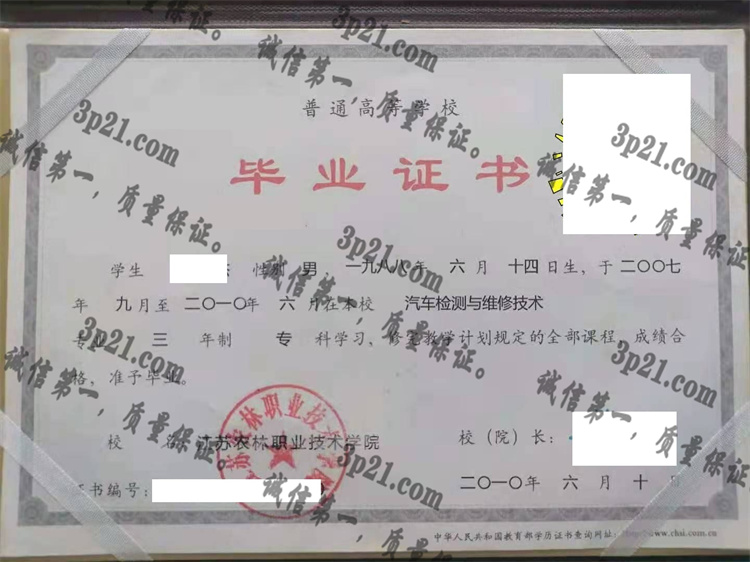 普通高等学校
毕业证书
学生 性别 男 一九八八年 六月 十四日生，于二〇〇七
年 九月至 二〇一〇年 六月在本校 汽车检测与维修技术
专业 三 年制 专 科学习，修完教学计划规定的全部课程，成绩合
格，准予毕业。
校 名：江苏农林职业技术学院 校（院）长：
证书编号： 二〇一〇年 六月 十日
中华人民共和国教育部学历证书查询网址：http://www.chsi.com.cn
江苏农林职业技术学院
3p21.com
诚信第一，质量保证。
3p21.com
诚信第一，质量保证。
3p21.com
诚信第一，质量保证。
3p21.com
诚信第一，质量保证。
3p21.com
诚信第一，质量保证。
3p21.com
诚信第一，质量保证。
3p21.com
诚信第一，质量保证。